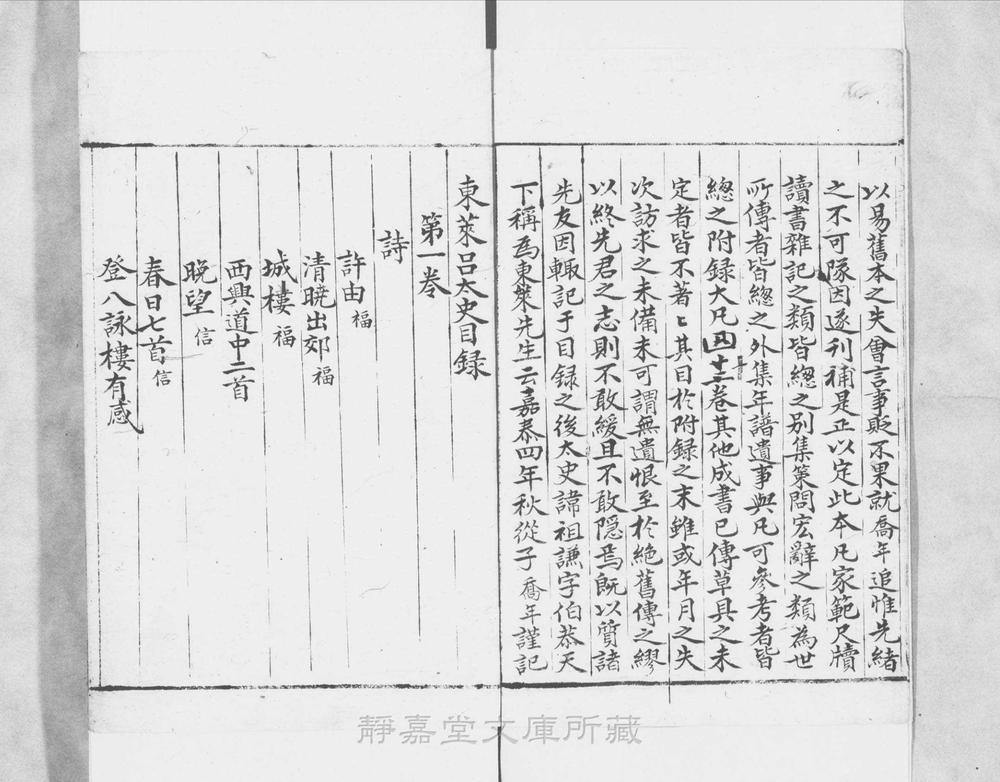 以易舊本之失會言事貶不果就喬年追惟先緒
之不可隊因遂刊補是正以定此本凡家範尺牘
讀書雜記之類皆緫之別集策問宏辭之類為世
所傳者皆緫之外集年譜遺事與凡可參考者皆
緫之附録大凡四十二卷其他成書已傳草具之未
定者皆不著〻其目於附録之末雖或年月之失
次訪求之未備未可謂無遺恨至於絶舊傳之繆
以終先君之志則不敢緩且不敢隠焉既以質諸
先友因輙記于目録之後太史諱祖謙字伯恭天
下稱為東萊先生云嘉泰四年秋從子喬年謹記
東萊呂太史目録
第一卷
詩
許由 福
清曉出郊 福
城樓 福
西興道中二首
晚望 信
春日七首 信
登八詠樓有感
靜嘉堂文庫所藏